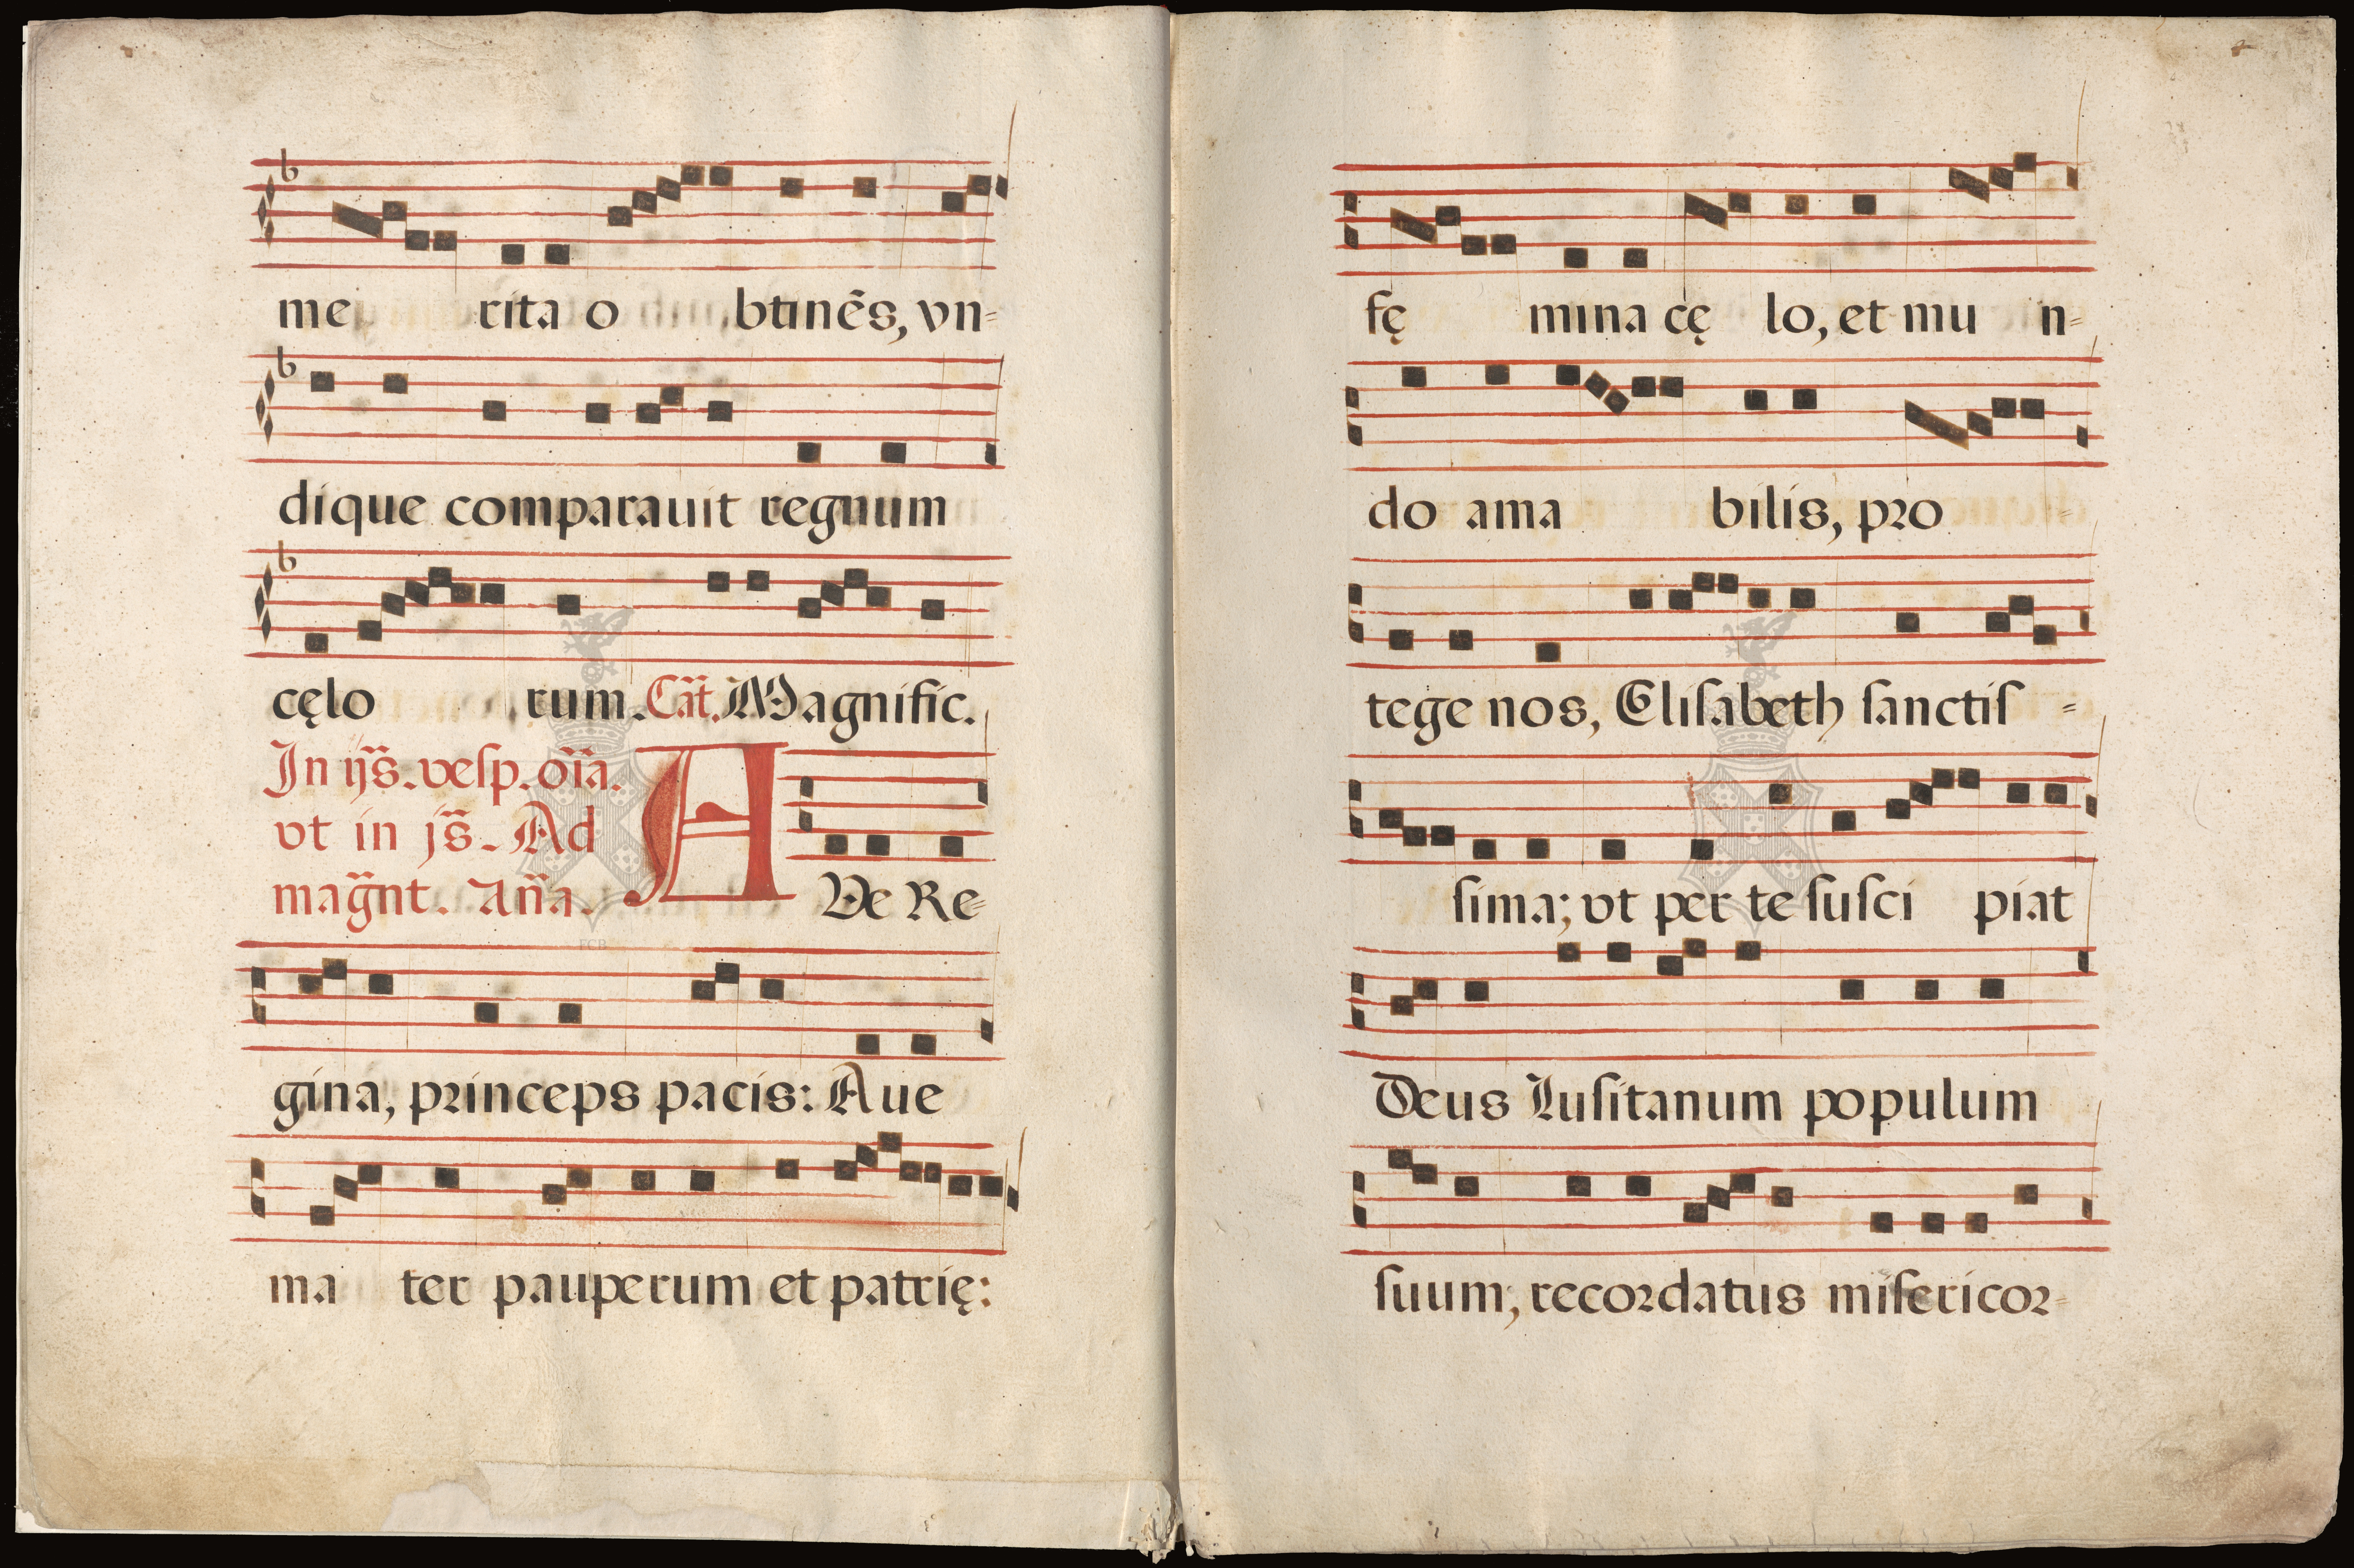 b
me rita o btinēs, vn=
b
dique comparauit regnum
b
cęlo rum. Cāt. Magnific.
In ijs̄. veſp. oīa.
vt in js̄. Ad
mag̃nt. An̄a.
A
Ve Re=
FCB
gina, princeps pacis: Aue
ma ter pauperum et patrię:
fę mina cę lo, et mu n=
do ama bilis, pro =
tege nos, Eliſabeth ſanctiſ =
ſima; vt per te ſuſci piat
Deus Luſitanum populum
ſuum, recordatus miſericor=